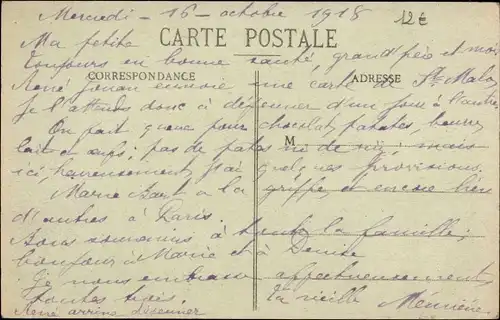 Mercredi - 16 - octobre 1918
12 €
Ma petite
CARTE POSTALE
Toujours en bonne santé, grand'père et moi.
CORRESPONDANCE
ADRESSE
René envoie une carte de St Malo,
Je l'attends donc à déjeuner d'un jour à l'autre
On fait queue pour chocolat, patates, beurre
M
lait et œufs; pas de pates ni de riz; mais
ici heureusement j'ai quelques provisions.
Marie a la grippe et encore bien
d'autres à Paris.
Bons souvenirs à toute la famille;
bonjour à Marie et à Denise
Je vous embrasse affectueusement
toutes trois.
Ta vieille Mémère
René arrive déjeuner